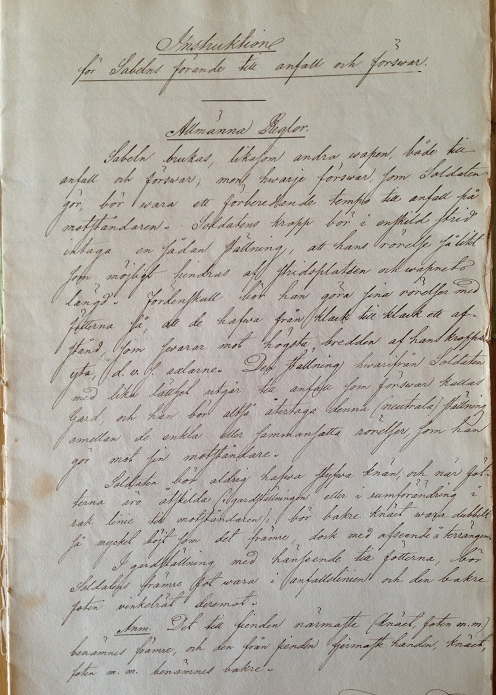 Instruktion
för Sabelns förande till anfall och förswar.
Allmänna Reglor.
Sabeln brukas, likasom andra wapen, både till
anfall och förswar; men hwarje förswar, som Soldaten
gör, bör wara ett förberedande tempo till anfall på
motståndaren. Soldatens kropp bör i enskild strid
intaga en sådan ställning, att hans rörelse så litet
som möjligt hindras af stridsplatsen och wapnets
längd. Fördenskull bör han göra sina rörelser med
fötterna så, att de hafwa från klack till klack ett af-
stånd som swarar mot högsta bredden af hans kropps
yta, d. v. s. axlarne. Den ställning hwarifrån Soldaten
med lika lätthet utgår till anfall som förswar kallas
Gard, och han bör alltså återtaga denna (neutrala) ställning
emellan de enkla eller sammansatta rörelser som han
gör mot sin motståndare.
Soldaten bör aldrig hafwa styfwa knän, och när föt-
terna äro åtskilda (i gardställningen eller i rumförändring i
rak linie till motståndaren), bör bakre knäet wara dubbelt
så mycket böjt som det främre, dock med afseende å terrängen.
I gardställning med hänseende till fötterna, bör
Soldatens främre fot wara i anfallslinien och den bakre
foten winkelrät deremot.
Anm. Det till fienden närmaste (knäet, foten m.m.)
benämnes främre, och den från fienden fjermaste handen, knäet,
foten m. m. benämnes bakre.